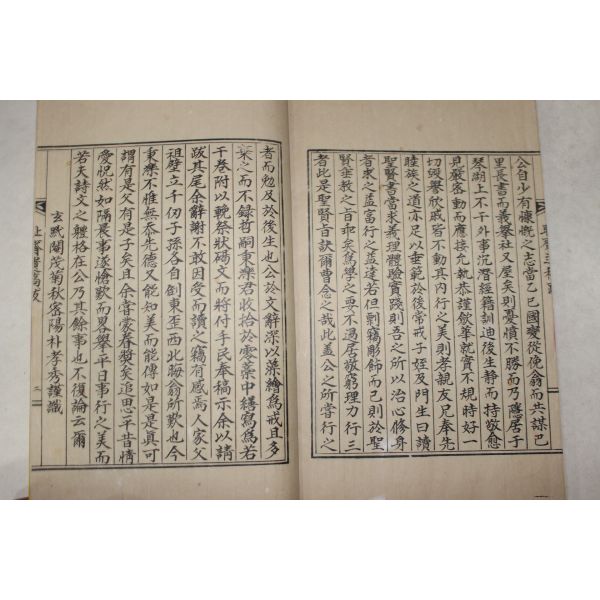 公自少有慷慨之志當乙巳國變從俛翁而共謀已
里長書而義擧社又屋矣則憂憤不勝而乃隱居于
琴湖上不干外事沉潛經籍訓迪後生靜而持敬愈
見嚴客動而應接允執恭謹歛華就實不規時好一
切毁譽欣戚皆不動其内行之美則孝親友兄奉先
睦族之道亦足以垂範於後常戒子姪及門生曰讀
聖賢書當求義理體驗實踐則吾之所以治心修身
者求之益富行之益達若但剽竊彫飾而已則於聖
賢垂敎之旨乖矣爲學之要不過居敬窮理力行三
者此是聖賢旨訣爾曹念之哉此盖公之所嘗行之
者而勉及於後生也公於文辭深以藻繪爲戒且多
棄之而不錄哲嗣秉樂君收拾於零藁中繕寫爲若
干卷附以輓祭狀碣文而將付手民奉稿示余以請
跋其尾余辭謝不敢因受而讀之竊有感焉人家父
祖壁立千仞子孫各自刱東歪西北海翁所歎也今
秉樂不惟無忝先德又能知美而能傳如是是眞可
謂有是父有是子矣且余嘗蒙眷奬矣追思平昔情
愛怳然如隔晨事遂愴歎而畧擧平日事行之美而
若夫詩文之軆格在公乃其餘事也不復論云爾
玄黓閹茂菊秋密陽朴孝秀謹識